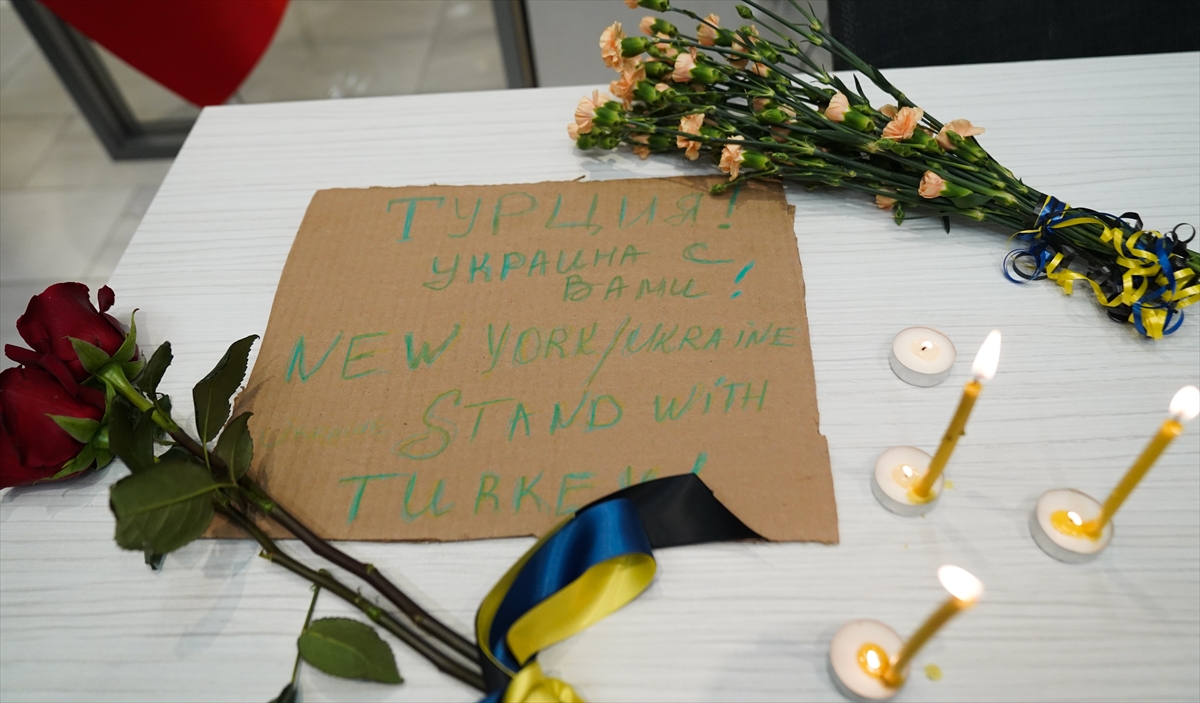 ТУРЦИЯ!
УКРАИНА С
ВАМИ!
NEW YORK/UKRAINE
STAND WITH
TURKEY!